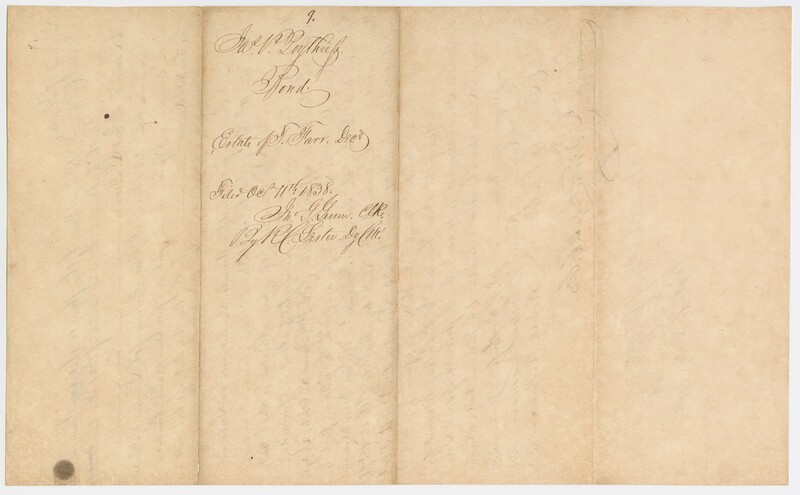 9.
Jas. R. Poythress
Bond.
Estate of F. Farr. Decd
Filed Oct 11th 1838.
Jno G. Gunn. Clk.
By R C Lester Dy Clk.